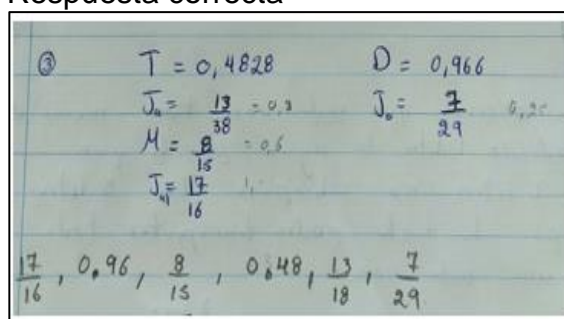 Respuesta correcta
③ T = 0,4828 D = 0,966
13/38 = 0,3 7/29
M = 8/15 = 0,5
17/16
17/16, 0,96, 8/15, 0,48, 13/18, 7/29